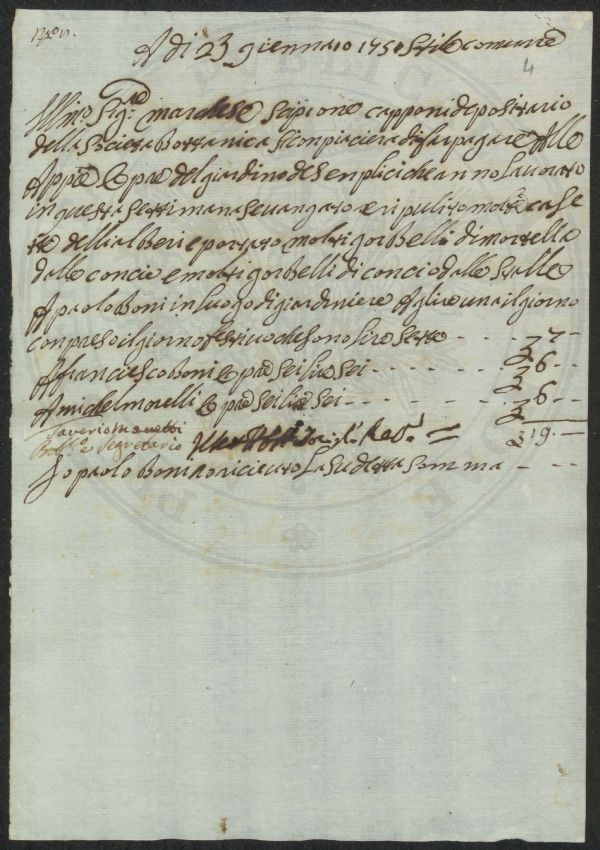 A di 23 giennaro 1751 Stile comune
4
Illmo Sigre marchese Scipione capponi depositario
della Societa Bottanica Si conpiaciera di far pagare Alle
Appie Opre del giardino de Senplici che anno lavorato
in questa Settimana e vangato e ripulito molte case
tte delli alberi e portato molti gorbelli di mortella
dalle concie e molti gorbelli di concio dalle Stalle
A paolo Boni in luogo di giardiniere A lire una il giorno
conpreso il giorno festivo che sono lire Sette - - - - 7 -
A franciesco Boni Opre Sei lire Sei - - - - - - 6 -
A michel morelli Opre Sei lire Sei - - - - - - 6 -
Saverio Manetti
e Segretario
19. -
Io paolo Boni o riceuto La Su detta Somma - - -
PUBLIC